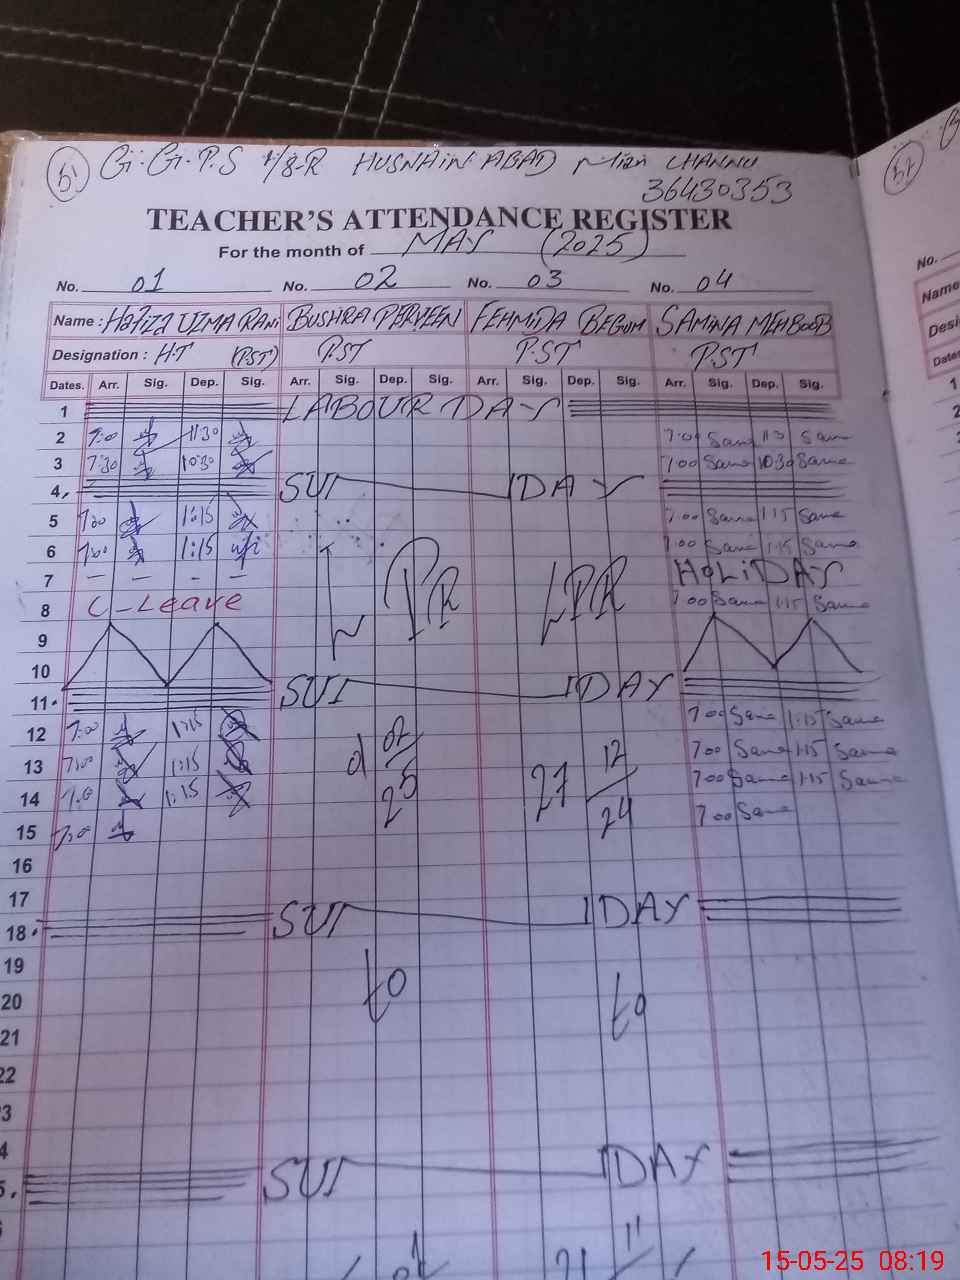 51 G.G.P.S 1/8-R HUSNAIN ABAD Mian CHANNU 57
36430353
TEACHER'S ATTENDANCE REGISTER
For the month of MAY (2025)
No. 01 No. 02 No. 03 No. 04 No.
Name : Hafiza UZMA RANi BUSHRA PERVEEN FEHMIDA BEGUM SAMINA MEHBOOB Name
Designation : H.T (PST) P.ST P.ST P.ST Desi
Dates. Arr. Sig. Dep. Sig. Arr. Sig. Dep. Sig. Arr. Sig. Dep. Sig. Arr. Sig. Dep. Sig. Dates
1 LABOUR DAY 1
2 7:00 11:30 7:00 Same 11:30 Same 2
3 7:30 10:30 7:00 Same 10:30 Same
4 SUNDAY
5 7:00 1:15 7:00 Same 1:15 Same
6 7:00 1:15 7:00 Same 1:15 Same
7 - - - - LPR LPR HOLiDAY
8 C-Leave 7:00 Same 1:15 Same
9
10
11 SUNDAY
12 7:00 1:15 7:00 Same 1:15 Same
13 7:00 1:15 01/02/25 27/12/24 7:00 Same 1:15 Same
14 7:00 1:15 7:00 Same 1:15 Same
15 7:00 7:00 Same
16
17
18 SUNDAY
19
20 to to
21
22
3
4
5 SUNDAY
11
15-05-25 08:19